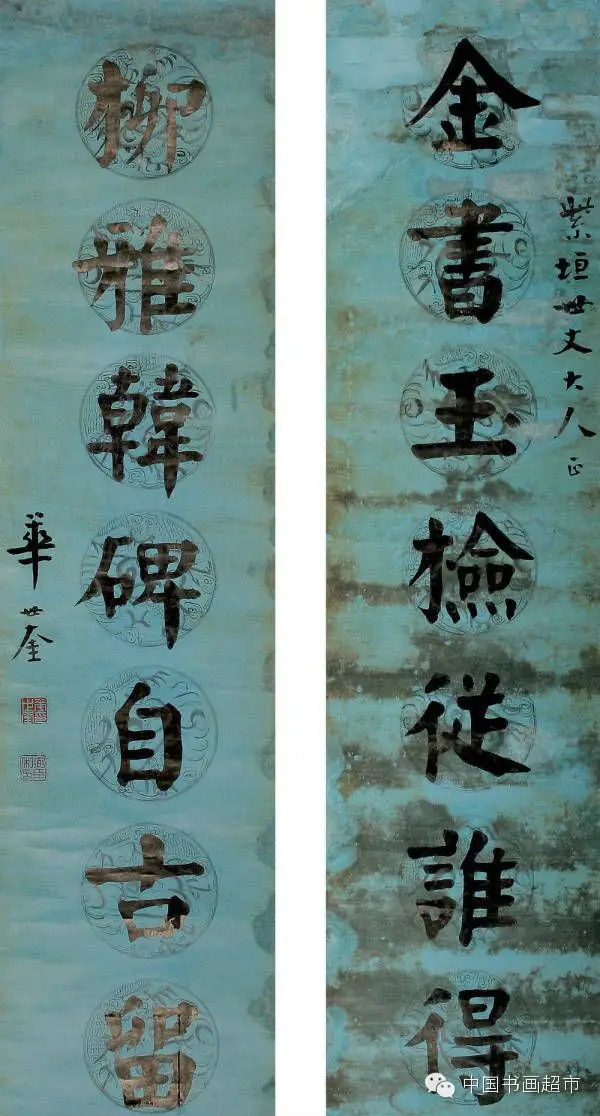 金書玉檢從誰得
紫垣世丈大人正
柳雅韓碑自古留
華世奎
中国书画超市